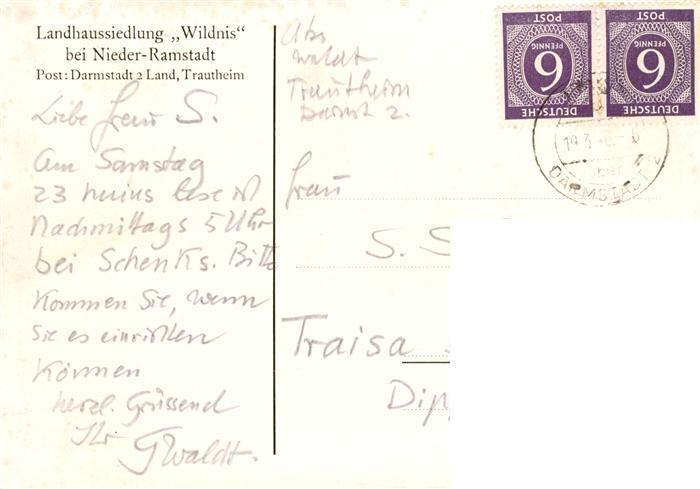 Landhaussiedlung „Wildnis“
bei Nieder-Ramstadt
Post: Darmstadt 2 Land, Trautheim
Liebe Frau S.
Am Samstag
23 huius lese ich
Nachmittags 5 Uhr
bei Schenks. Bitte
Kommen Sie, wenn
Sie es einrichten
Können
herzl. Grüssend
Ihr
GWaldt.
Abs
Waldt
Trautheim
Darmst 2.
Frau
S. S
Traisa
Dip
DEUTSCHE
6
PFENNIG
POST
DEUTSCHE
6
PFENNIG
POST
19.3
DARMSTADT